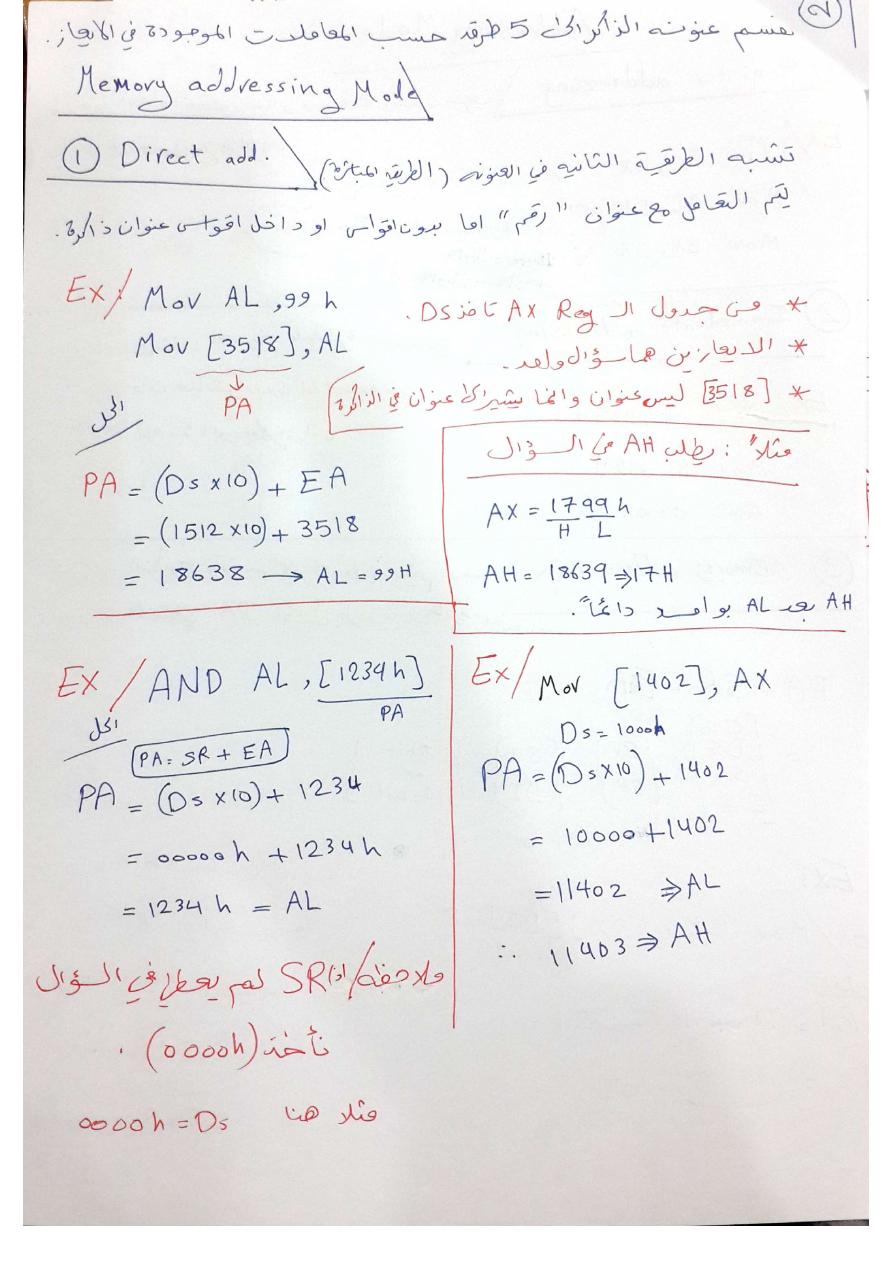 2
نقسم عنونه الذاكرة الى 5 طرق حسب المعاملات الموجودة في الايعاز.
Memory addressing Mode
① Direct add.
تشبه الطريقة الثانيه في العنونه (الطريقه المباشرة)
يتم التعامل مع عنوان "رقم" اما بدون اقواس او داخل اقواس عنوان ذاكرة.
Ex/ Mov AL ,99 h
Mov [3518], AL
↓
PA
* من جدول الـ Reg AX تاخذ Ds.
* الايعازين هما سؤال واحد.
* [3518] ليس عنوان وانما يشير الى عنوان في الذاكرة
الحل
PA = (Ds x10) + EA
= (1512 x10) + 3518
= 18638 → AL = 99H
مثلاً : يطلب AH في السؤال
AX = 1799 h
H L
AH = 18639 ⇒ 17H
AH بعد AL بواحد دائماً.
Ex / AND AL , [1234 h]
PA
الحل
PA = SR + EA
PA = (Ds x10) + 1234
= 00000 h + 1234 h
= 1234 h = AL
ملاحظة/ اذا SR لم يعطى في السؤال
نأخذ (0000h) .
مثلا هنا 0000h = Ds
Ex/ Mov [1402], AX
Ds = 1000h
PA = (Ds x10) + 1402
= 10000 + 1402
= 11402 ⇒ AL
∴ 11403 ⇒ AH